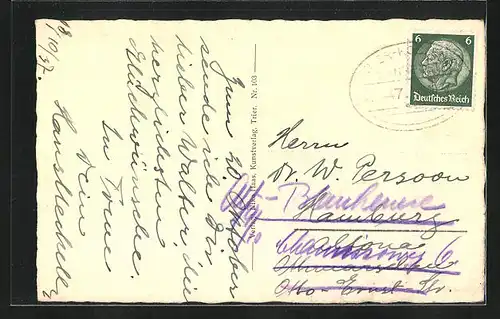 18/10/37.
Zum 20. Oktober
sende ich Dir
lieber Walter, die
herzlichsten
Glückwünsche.
In Treue
Dein
Kunstverlag, Trier. Nr. 103
6 6
Deutsches Reich
Herrn
Dr. W. Persoon
Blankenese
Hamburg
Altona
6
Otto-Ernst Str.